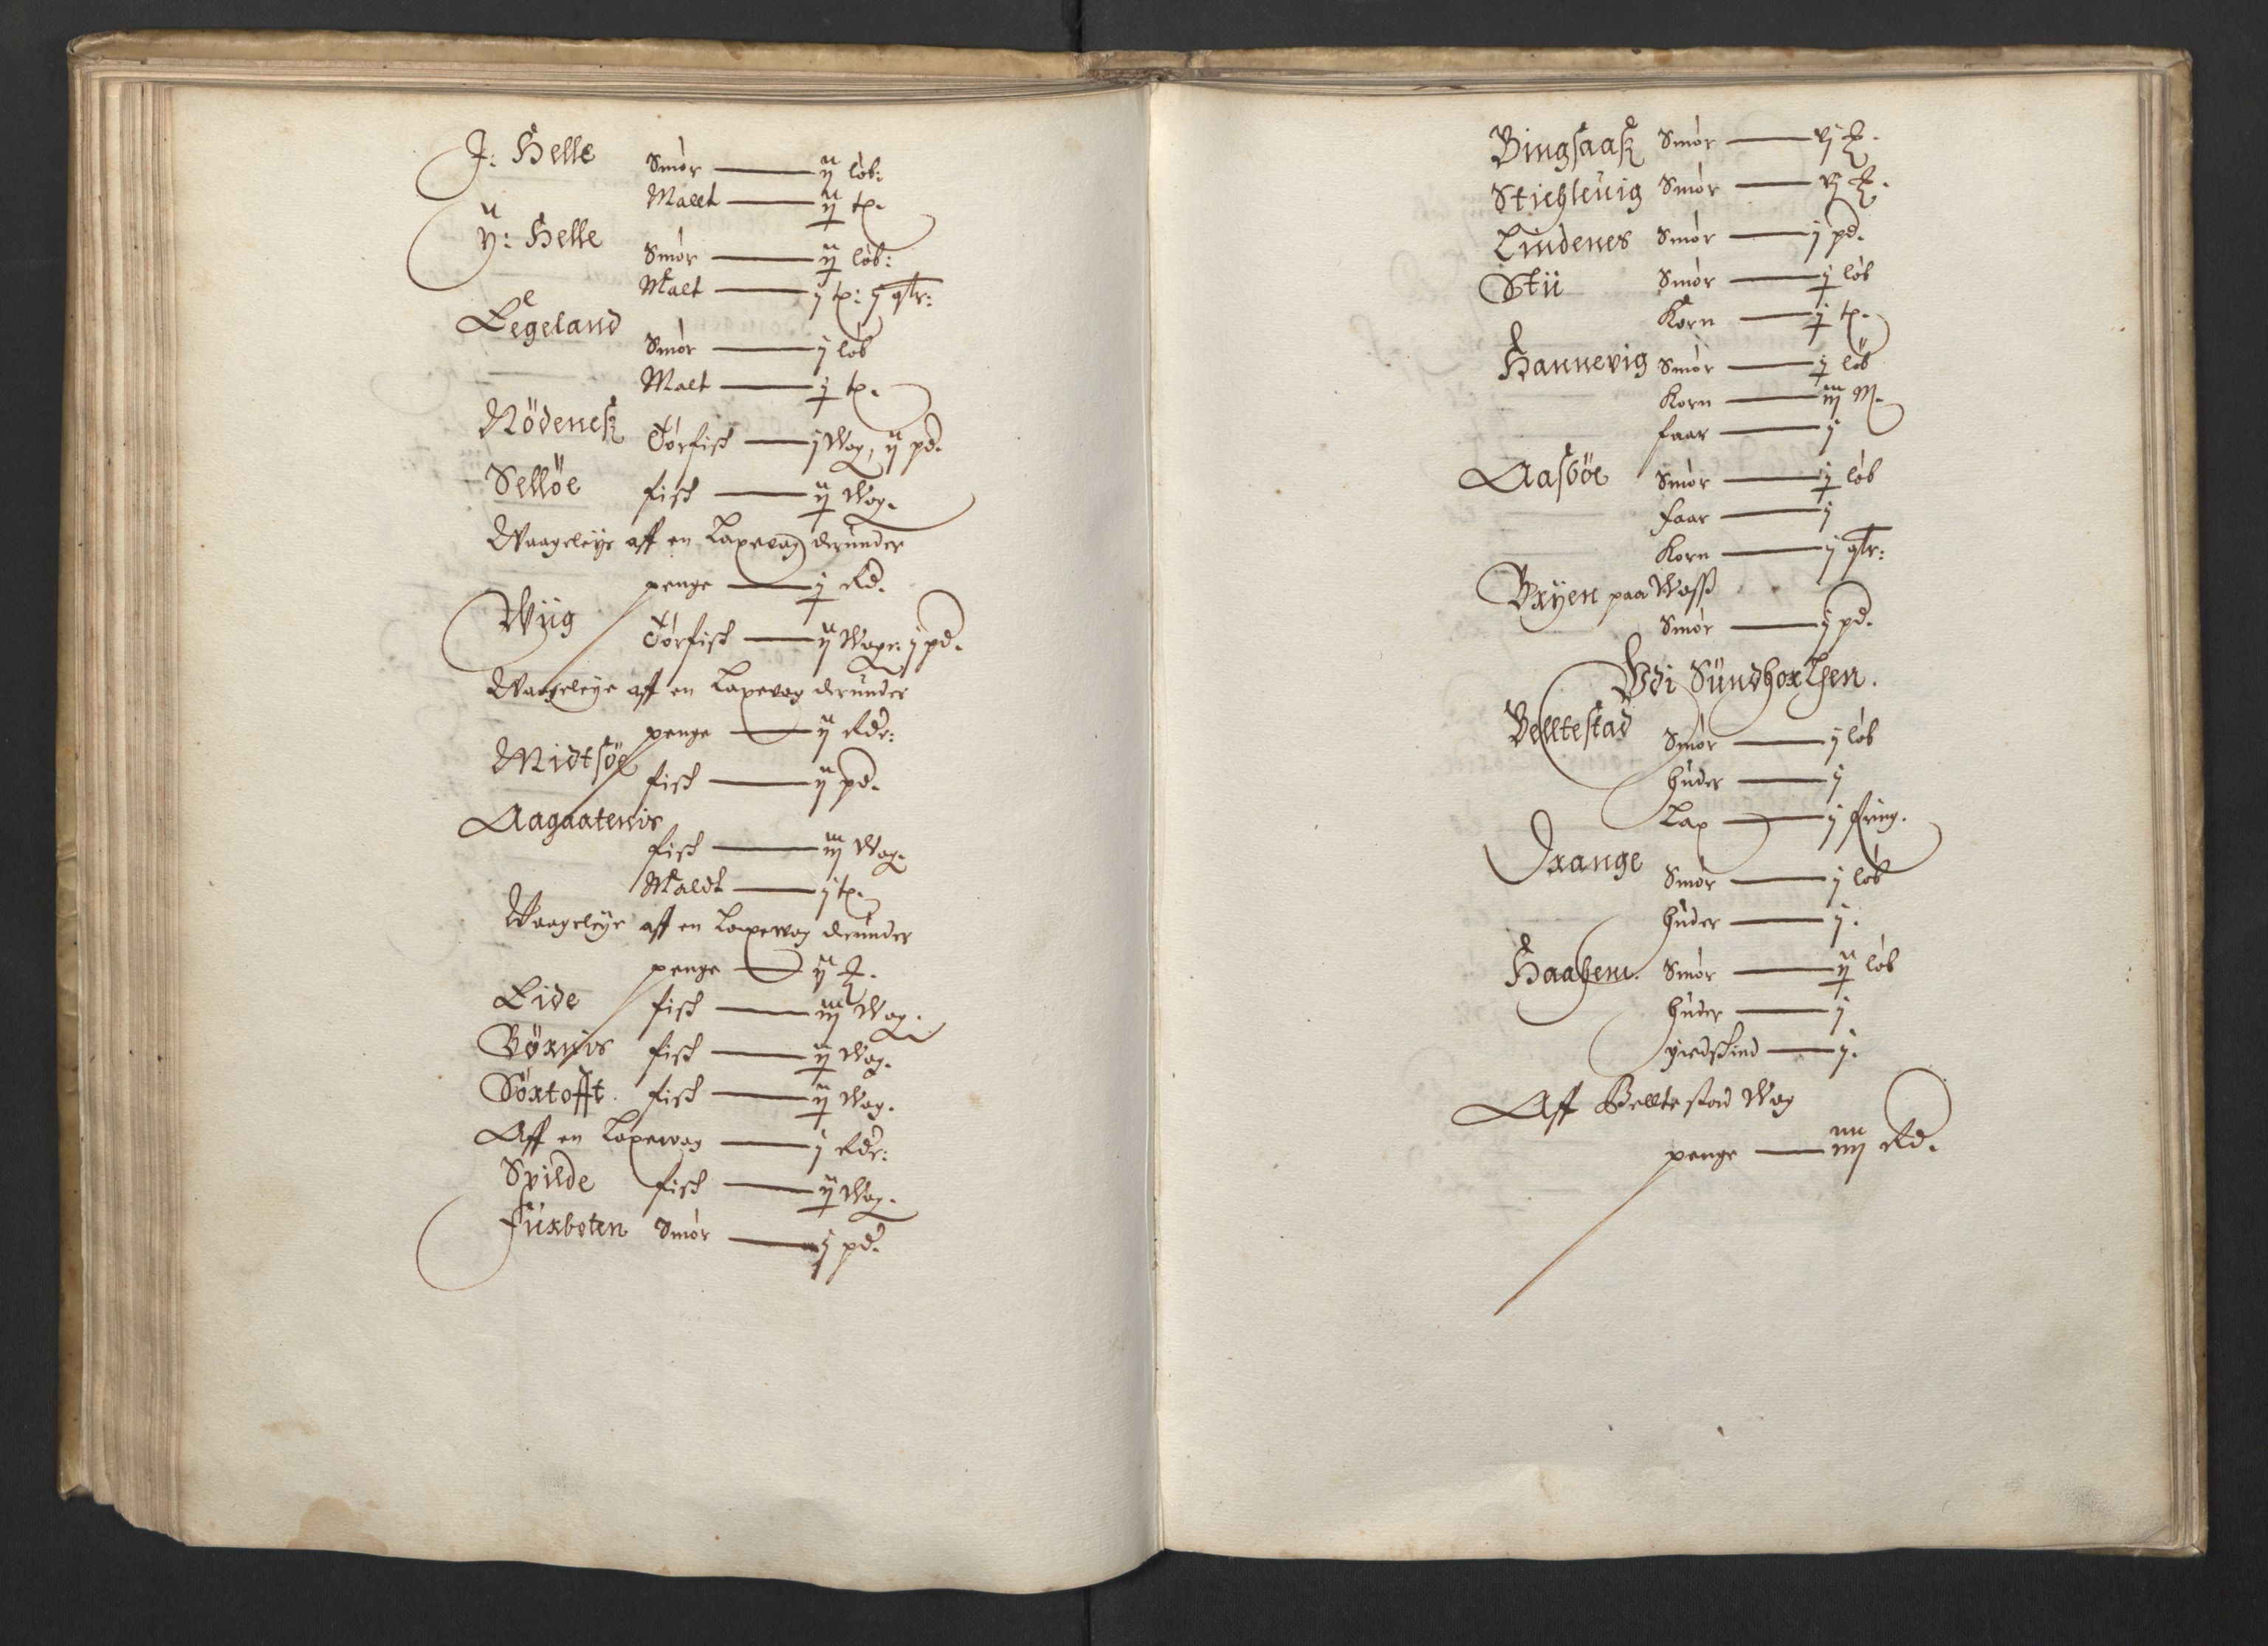 J: Helle
Smør — ij løb:
Maelt — ij tp.
ij: Helle
Smør — ij løb:
Malt — j tp: j qtr:
Legeland
Smør — j løb
Malt — j tp.
Nödenes Tørfisk — j Wog, ij pd.
Sellöe fisk — ij Wog.
Waageleye aff en Laxevog derunder
penge — j Rd.
Wiig Tørfisk — ij Woger j pd.
Waageleye aff en Laxevog derunder
penge — ij Rdr:
Midtsöe fisk — ij pd.
Aagaatenis
fisk — iij Wog.
Maldt — j tp.
Waageleye aff en Laxevog derunder
penge — ij
Eide fisk — iij Wog.
Börnis fisk — ij Wog.
Sörtofft. fisk — ij Wog.
Aff en Laxevog — j Rdr:
Svilde fisk — ij Wog.
Furboten Smør — j pd.
Bingsaas Smør — vj
Stichleuig Smør — vj
Lindenes Smør — j pd.
Stii Smør — j løb
Korn — j tp.
Hannevig Smør — j løb
Korn — iij M.
faar — j
Aasböe Smør — j løb
faar — j
Korn — j qtr:
Bryen paa Woss
Smør — j pd.
Vdi Sündhorlehen.
Belltestad Smør — j løb
huder — j
Lax — j
Drange Smør — j løb
huder — j.
Haahem. Smør — ij løb
huder — j
giedskind — j.
Aff Belltestad Wog
penge — iiij Rd.